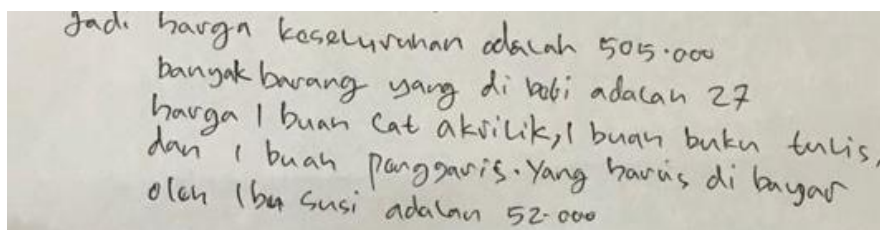 Jadi harga keseluruhan adalah 505.000
banyak barang yang di beli adalah 27
harga 1 buah cat akrilik, 1 buah buku tulis,
dan 1 buah penggaris. Yang harus di bayar
oleh Ibu Susi adalah 52.000